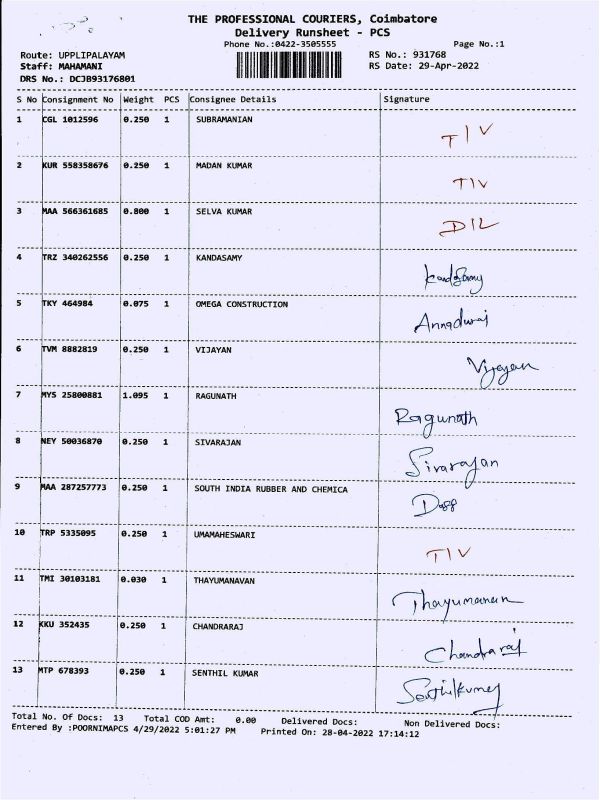 THE PROFESSIONAL COURIERS, Coimbatore
Delivery Runsheet - PCS
Phone No.:0422-3505555 Page No.:1
Route: UPPLIPALAYAM RS No.: 931768
Staff: MAHAMANI RS Date: 29-Apr-2022
DRS No.: DCJB93176801
S No Consignment No Weight PCS Consignee Details Signature
1 CGL 1012596 0.250 1 SUBRAMANIAN TIV
2 KUR 558358676 0.250 1 MADAN KUMAR TIV
3 MAA 566361685 0.800 1 SELVA KUMAR D/L
4 TRZ 340262556 0.250 1 KANDASAMY Kandasamy
5 TKY 464984 0.075 1 OMEGA CONSTRUCTION Annadurai
6 TVM 8882819 0.250 1 VIJAYAN Vijayan
7 MYS 25800881 1.095 1 RAGUNATH Ragunath
8 NEY 50036870 0.250 1 SIVARAJAN Sivarajan
9 MAA 287257773 0.250 1 SOUTH INDIA RUBBER AND CHEMICA
10 TRP 5335095 0.250 1 UMAMAHESWARI TIV
11 TMI 30103181 0.030 1 THAYUMANAVAN
12 KKU 352435 0.250 1 CHANDRARAJ Chandraraj
13 MTP 678393 0.250 1 SENTHIL KUMAR Senthilkumar
Total No. Of Docs: 13 Total COD Amt: 0.00 Delivered Docs: Non Delivered Docs:
Entered By :POORNIMAPCS 4/29/2022 5:01:27 PM Printed On: 28-04-2022 17:14:12